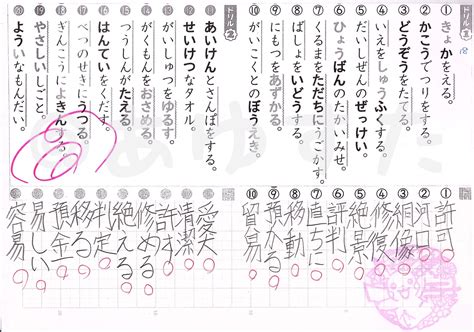 ドリル1
① きょかをえる。
② かこうでつりをする。
③ どうぞうをたてる。
④ いえをしゅうふくする。
⑤ だいしぜんのぜっけい。
⑥ ひょうばんのたかいみせ。
⑦ くるまをただちにうごかす。
⑧ ばしょをいどうする。
⑨ にもつをあずかる。
⑩ がいこくとのぼうえき。
ドリル2
⑪ あいけんとさんぽをする。
⑫ せいけつなタオル。
⑬ がいしゅつをゆるす。
⑭ がくもんをおさめる。
⑮ つうしんがたえる。
⑯ はんていをくだす。
⑰ べつのせきにうつる。
⑱ ぎんこうによきんする。
⑲ やさしいしごと。
⑳ よういなもんだい。
① 許可
② 河口
③ 銅像
④ 修復
⑤ 絶景
⑥ 評判
⑦ 直ちに
⑧ 移動
⑨ 預かる
⑩ 貿易
⑪ 愛犬
⑫ 清潔
⑬ 許す
⑭ 修める
⑮ 絶える
⑯ 判定
⑰ 移る
⑱ 預金
⑲ 易しい
⑳ 容易